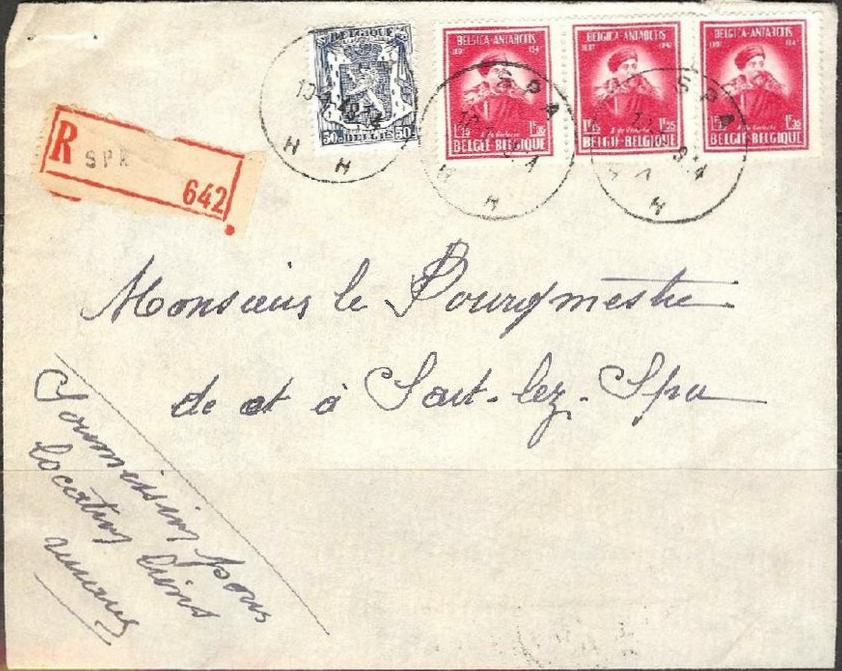 BELGIQUE
50c BELGIE 50c
BELGICA-ANTARCTIS
1897 1947
1F35 1F35
BELGIË-BELGIQUE
BELGICA-ANTARCTIS
1897 1947
1F35 1F35
BELGIË-BELGIQUE
BELGICA-ANTARCTIS
1897 1947
1F35 1F35
BELGIË-BELGIQUE
SPA
SPA
H H
R SPA
642
Monsieur le Bourgmestre
de et à Sart-lez-Spa
Soumission pour
location biens
ruraux